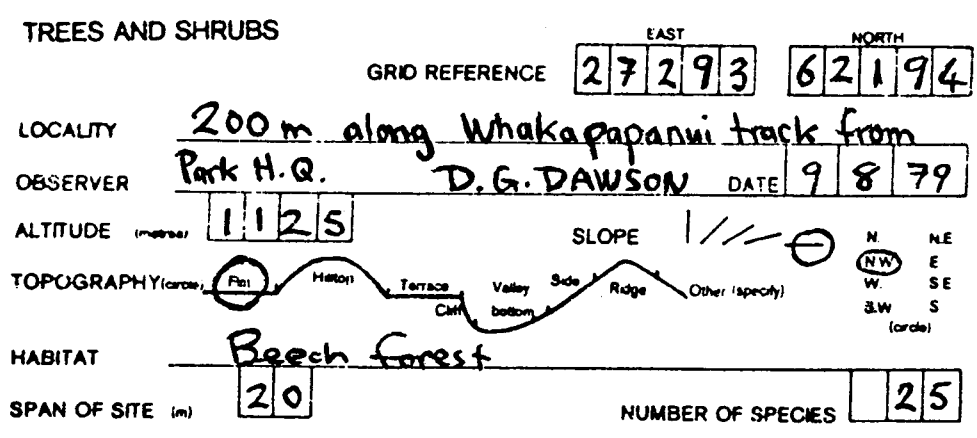 TREES AND SHRUBS
EAST NORTH
GRID REFERENCE 27293 62194
LOCALITY 200 m along Whakapapanui track from
OBSERVER Park H.Q. D.G. DAWSON DATE 9 8 79
ALTITUDE (metres) 1125
SLOPE N. N.E
NW E
TOPOGRAPHY (circle) Flat Hilltop Terrace Cliff Valley bottom Side Ridge Other (specify) W. SE
S.W S
(circle)
HABITAT Beech forest
SPAN OF SITE (m) 20 NUMBER OF SPECIES 25